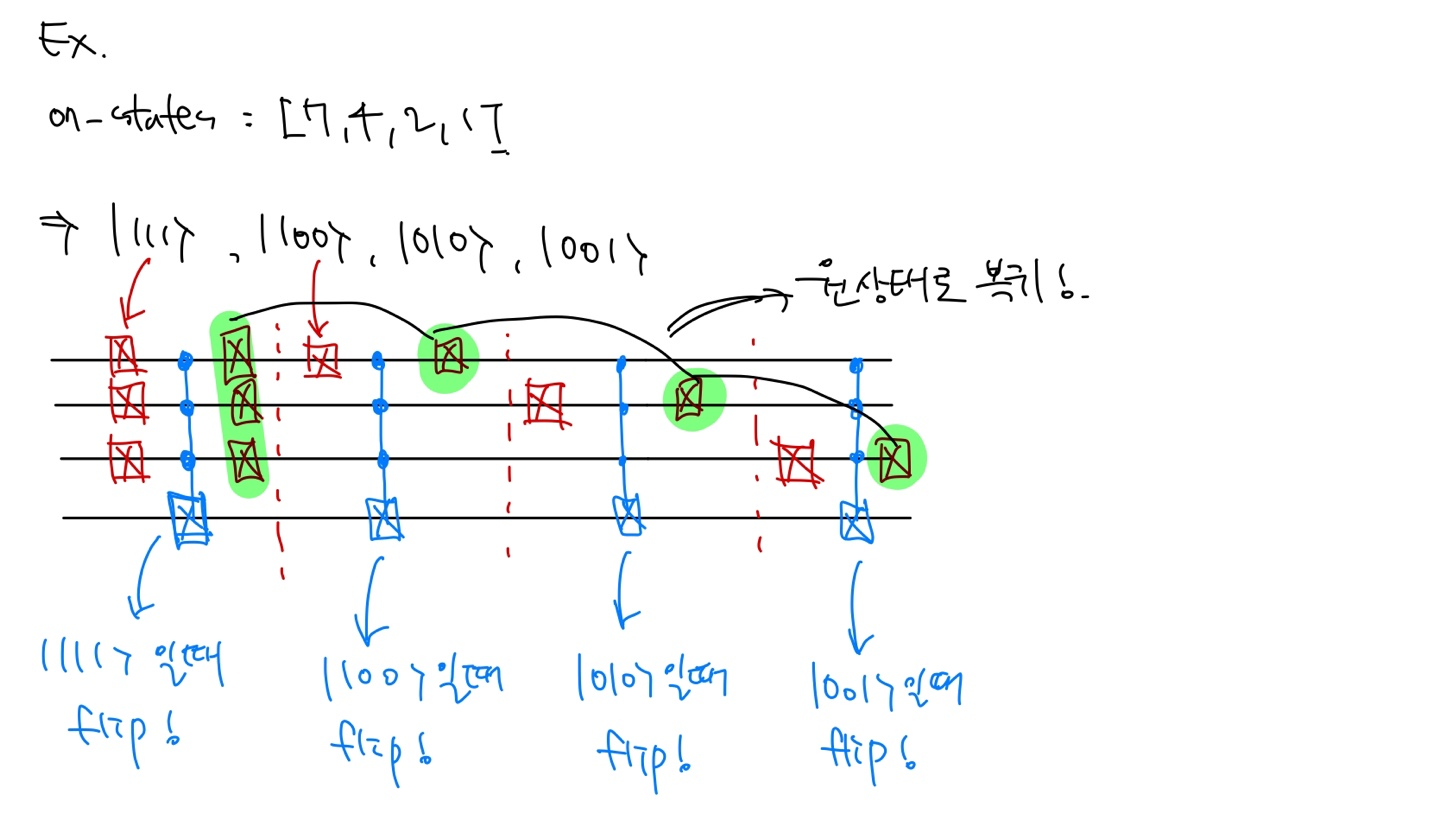 Ex.
on-states = [7, 4, 2, 1]
⇒ |111⟩, |100⟩, |010⟩, |001⟩
원상태로 복귀!
|111⟩일때
flip!
|100⟩일때
flip!
|010⟩일때
flip!
|001⟩일때
flip!